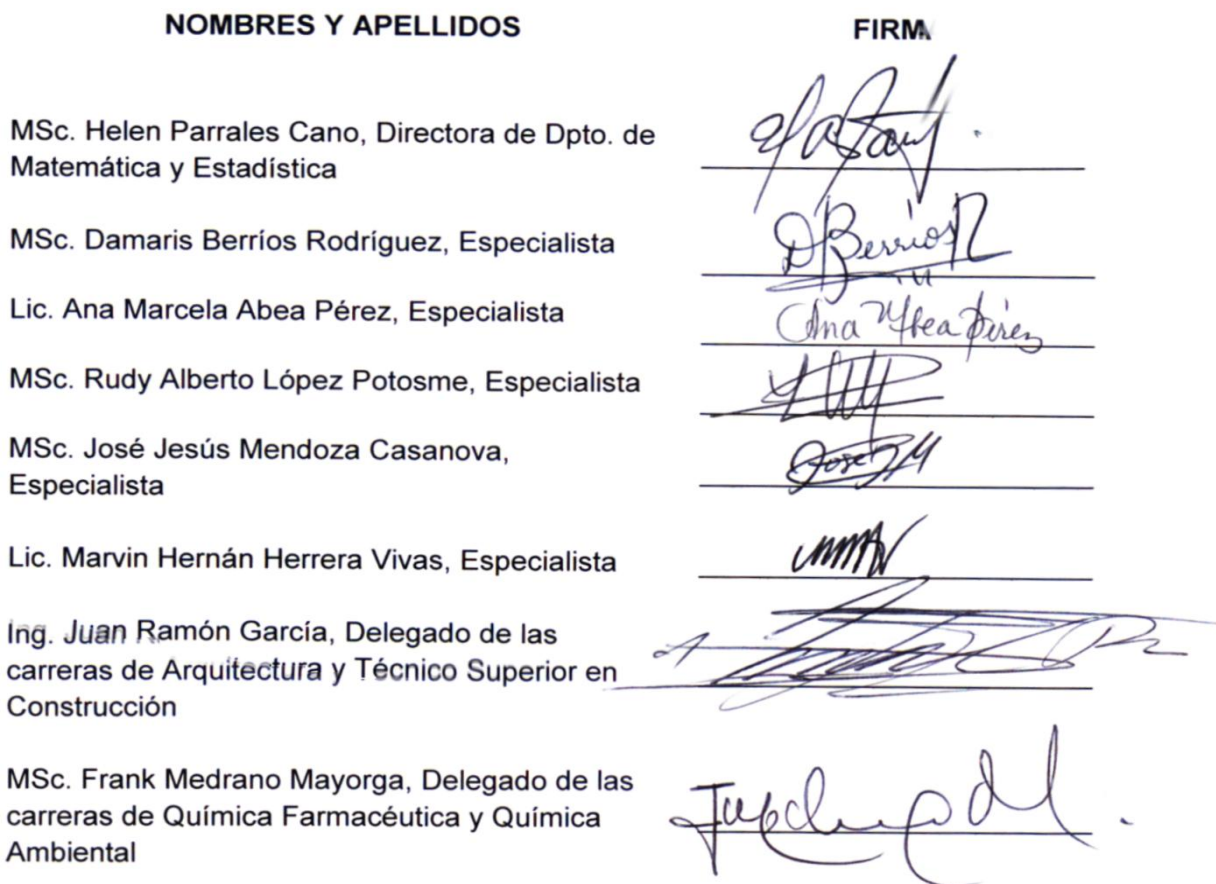 NOMBRES Y APELLIDOS FIRM
MSc. Helen Parrales Cano, Directora de Dpto. de
Matemática y Estadística
MSc. Damaris Berríos Rodríguez, Especialista
DBerriosR
Lic. Ana Marcela Abea Pérez, Especialista
Ana MAbea Pérez
MSc. Rudy Alberto López Potosme, Especialista
MSc. José Jesús Mendoza Casanova,
Especialista
José JM
Lic. Marvin Hernán Herrera Vivas, Especialista
Ing. Juan Ramón García, Delegado de las
carreras de Arquitectura y Técnico Superior en
Construcción
MSc. Frank Medrano Mayorga, Delegado de las
carreras de Química Farmacéutica y Química
Ambiental